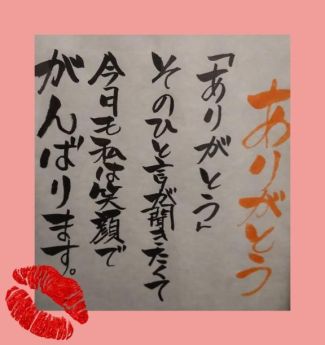 ありがとう
「ありがとう」
そのひと言が聞きたくて
今日も私は笑顔で
がんばります。